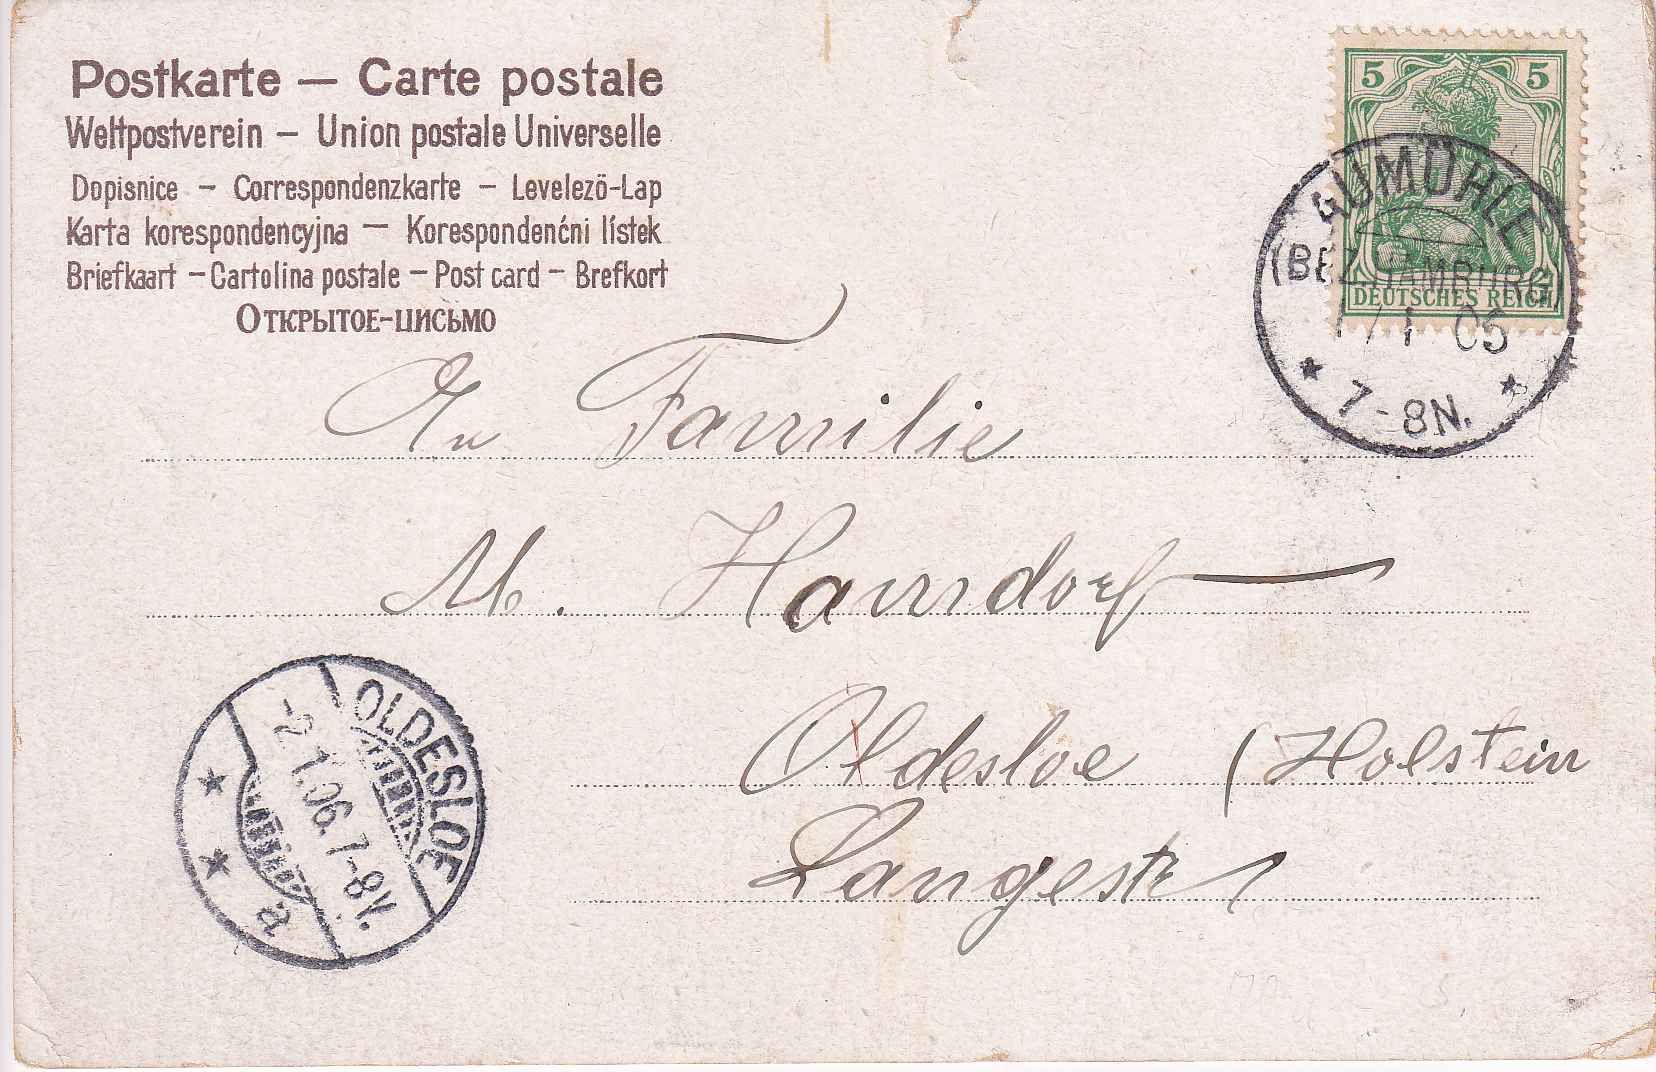 Postkarte — Carte postale
Weltpostverein – Union postale Universelle
Dopisnice – Correspondenzkarte – Levelező-Lap
Karta korespondencyjna — Korespondenćni lístek
Briefkaart – Cartolina postale – Post card – Brefkort
Открытое-письмо
5 5
DEUTSCHES REICH
AUMÜHLE
(BEZ. HAMBURG)
1 05
7-8N.
An Familie
M. Harndorf
Oldesloe (Holstein
Langestr
OLDESLOE
-2.1.06. 7-8V.
a